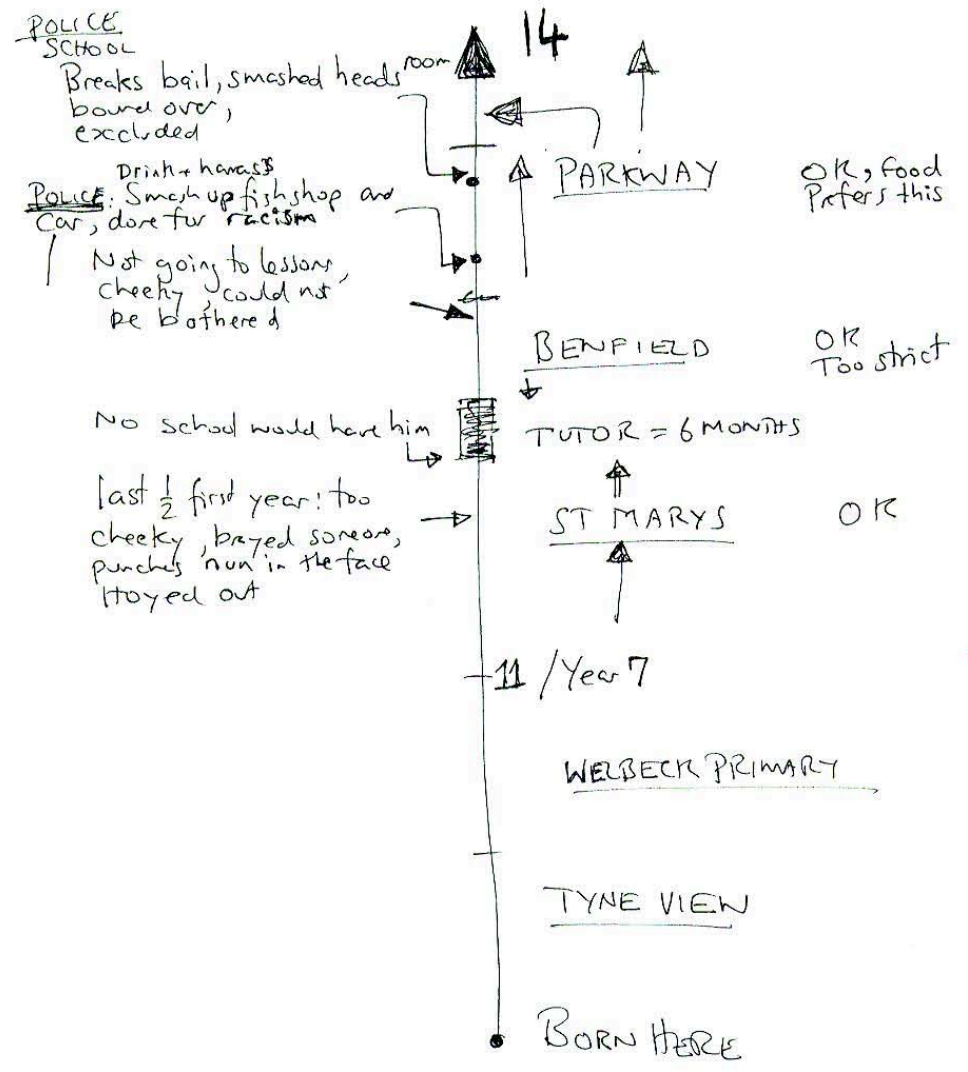 POLICE
SCHOOL
Breaks bail, smashed heads room
bound over,
excluded
14
Drink + harass
POLICE: Smash up fishshop and
car, done for racism
PARKWAY
OK, food
Prefers this
Not going to lessons,
cheeky, could not
be bothered
BENFIELD
OK
Too strict
No school would have him
TUTOR = 6 MONTHS
last ½ first year: too
cheeky, brayed someone,
punches nun in the face
Hoyed out
ST MARYS
OK
11 / Year 7
WELBECK PRIMARY
TYNE VIEW
BORN HERE